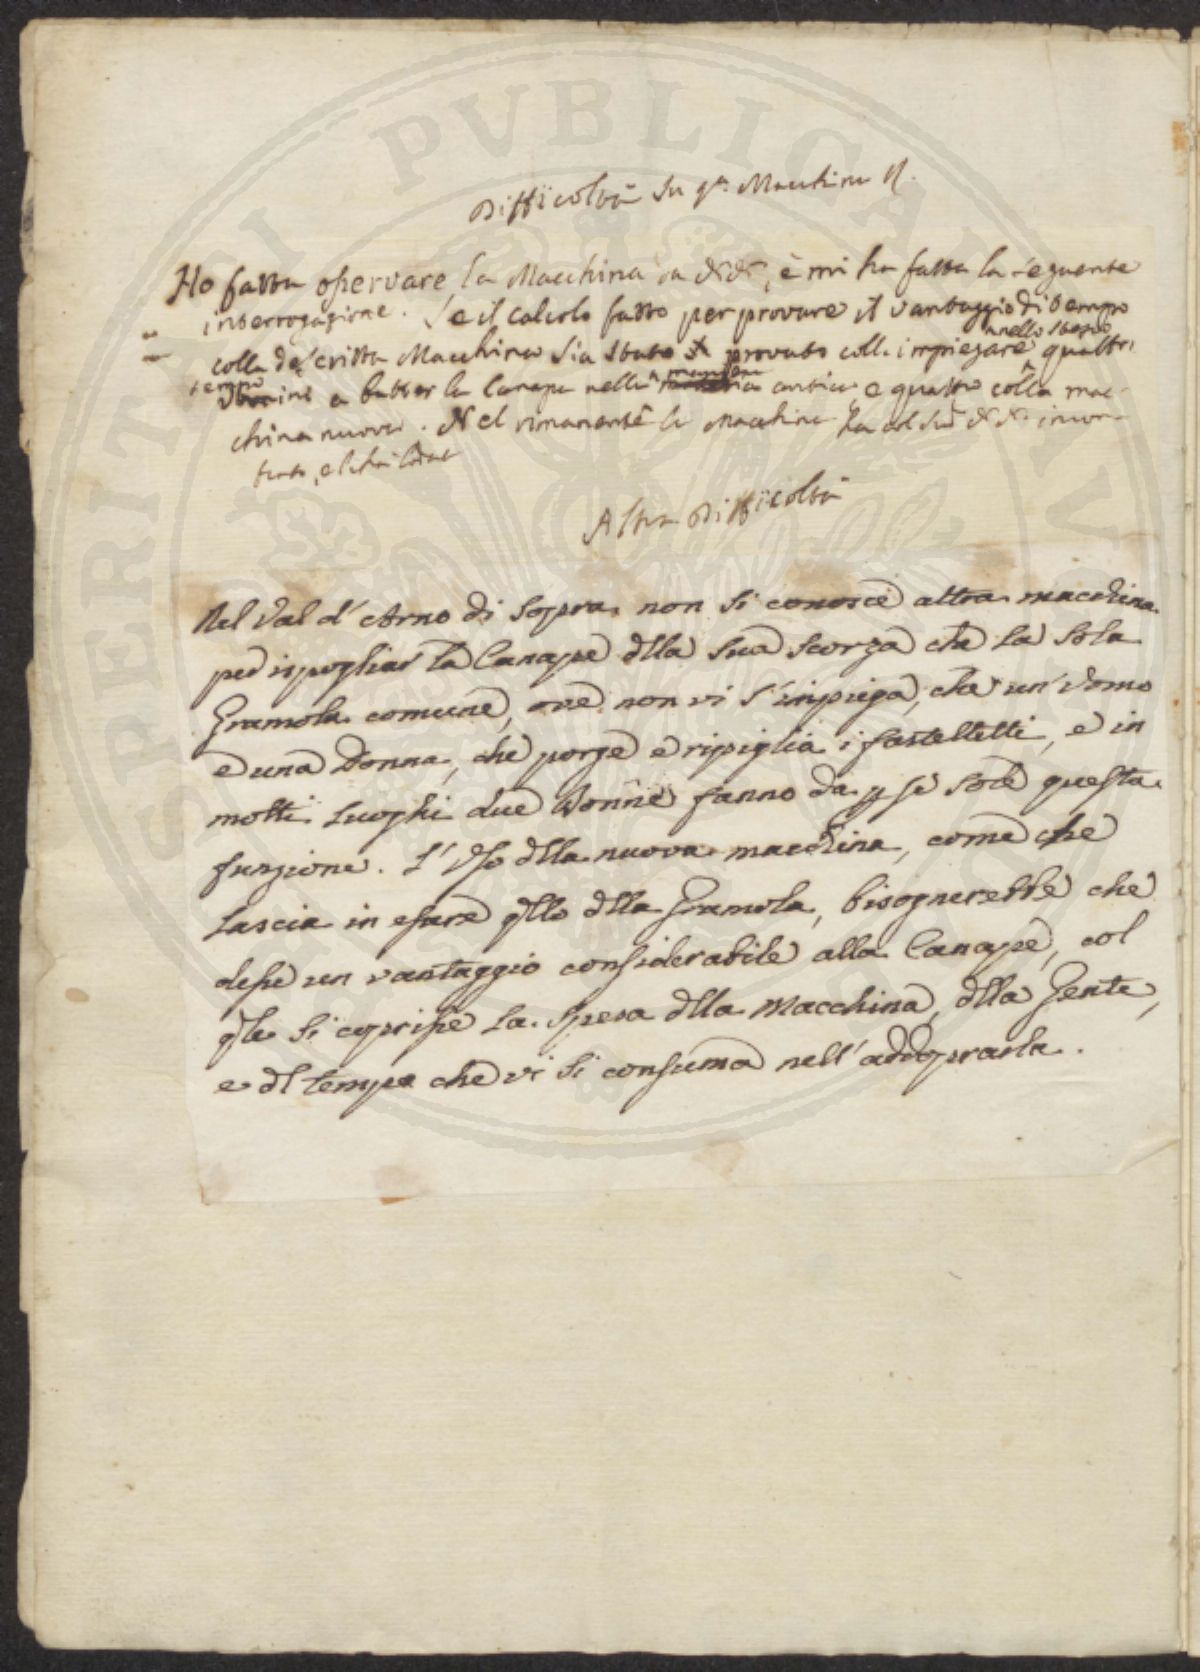 Difficoltà su q.ᵃ Macchina
Ho fatta oservare la Macchina da, è mi ha fatta la seguente
interrogazione. Se il calcolo fatto per provare il vantaggio di tempo
colla descritta Macchina sia stato provato coll'impiegare nello stesso quattro
tempo uomini a batter la Canapa nella maniera antica, e quattro colla mac-
china nuova. Nel rimanente la Macchina ha incon-
trato, e
Altra Difficoltà
Nel Val d'Arno di Sopra non si conosce altra macchina
per ispogliar la Canape dlla sua scorza che la sola
Gramola comune, ove non vi s'impiega, che un'Uomo
e una Donna, che porge e ripiglia i fastelletti, e in
molti luoghi due Donne fanno da p se sole questa
funzione. L'Uso dlla nuova macchina, come che
lascia in esare qllo dlla Gramola, bisognerebbe che
dese un vantaggio considerabile alla Canape, col
qle si coprise la spesa dlla Macchina, dlla Gente,
e dl tempo che vi si consuma nell'addoprarla.
PVBLICAE